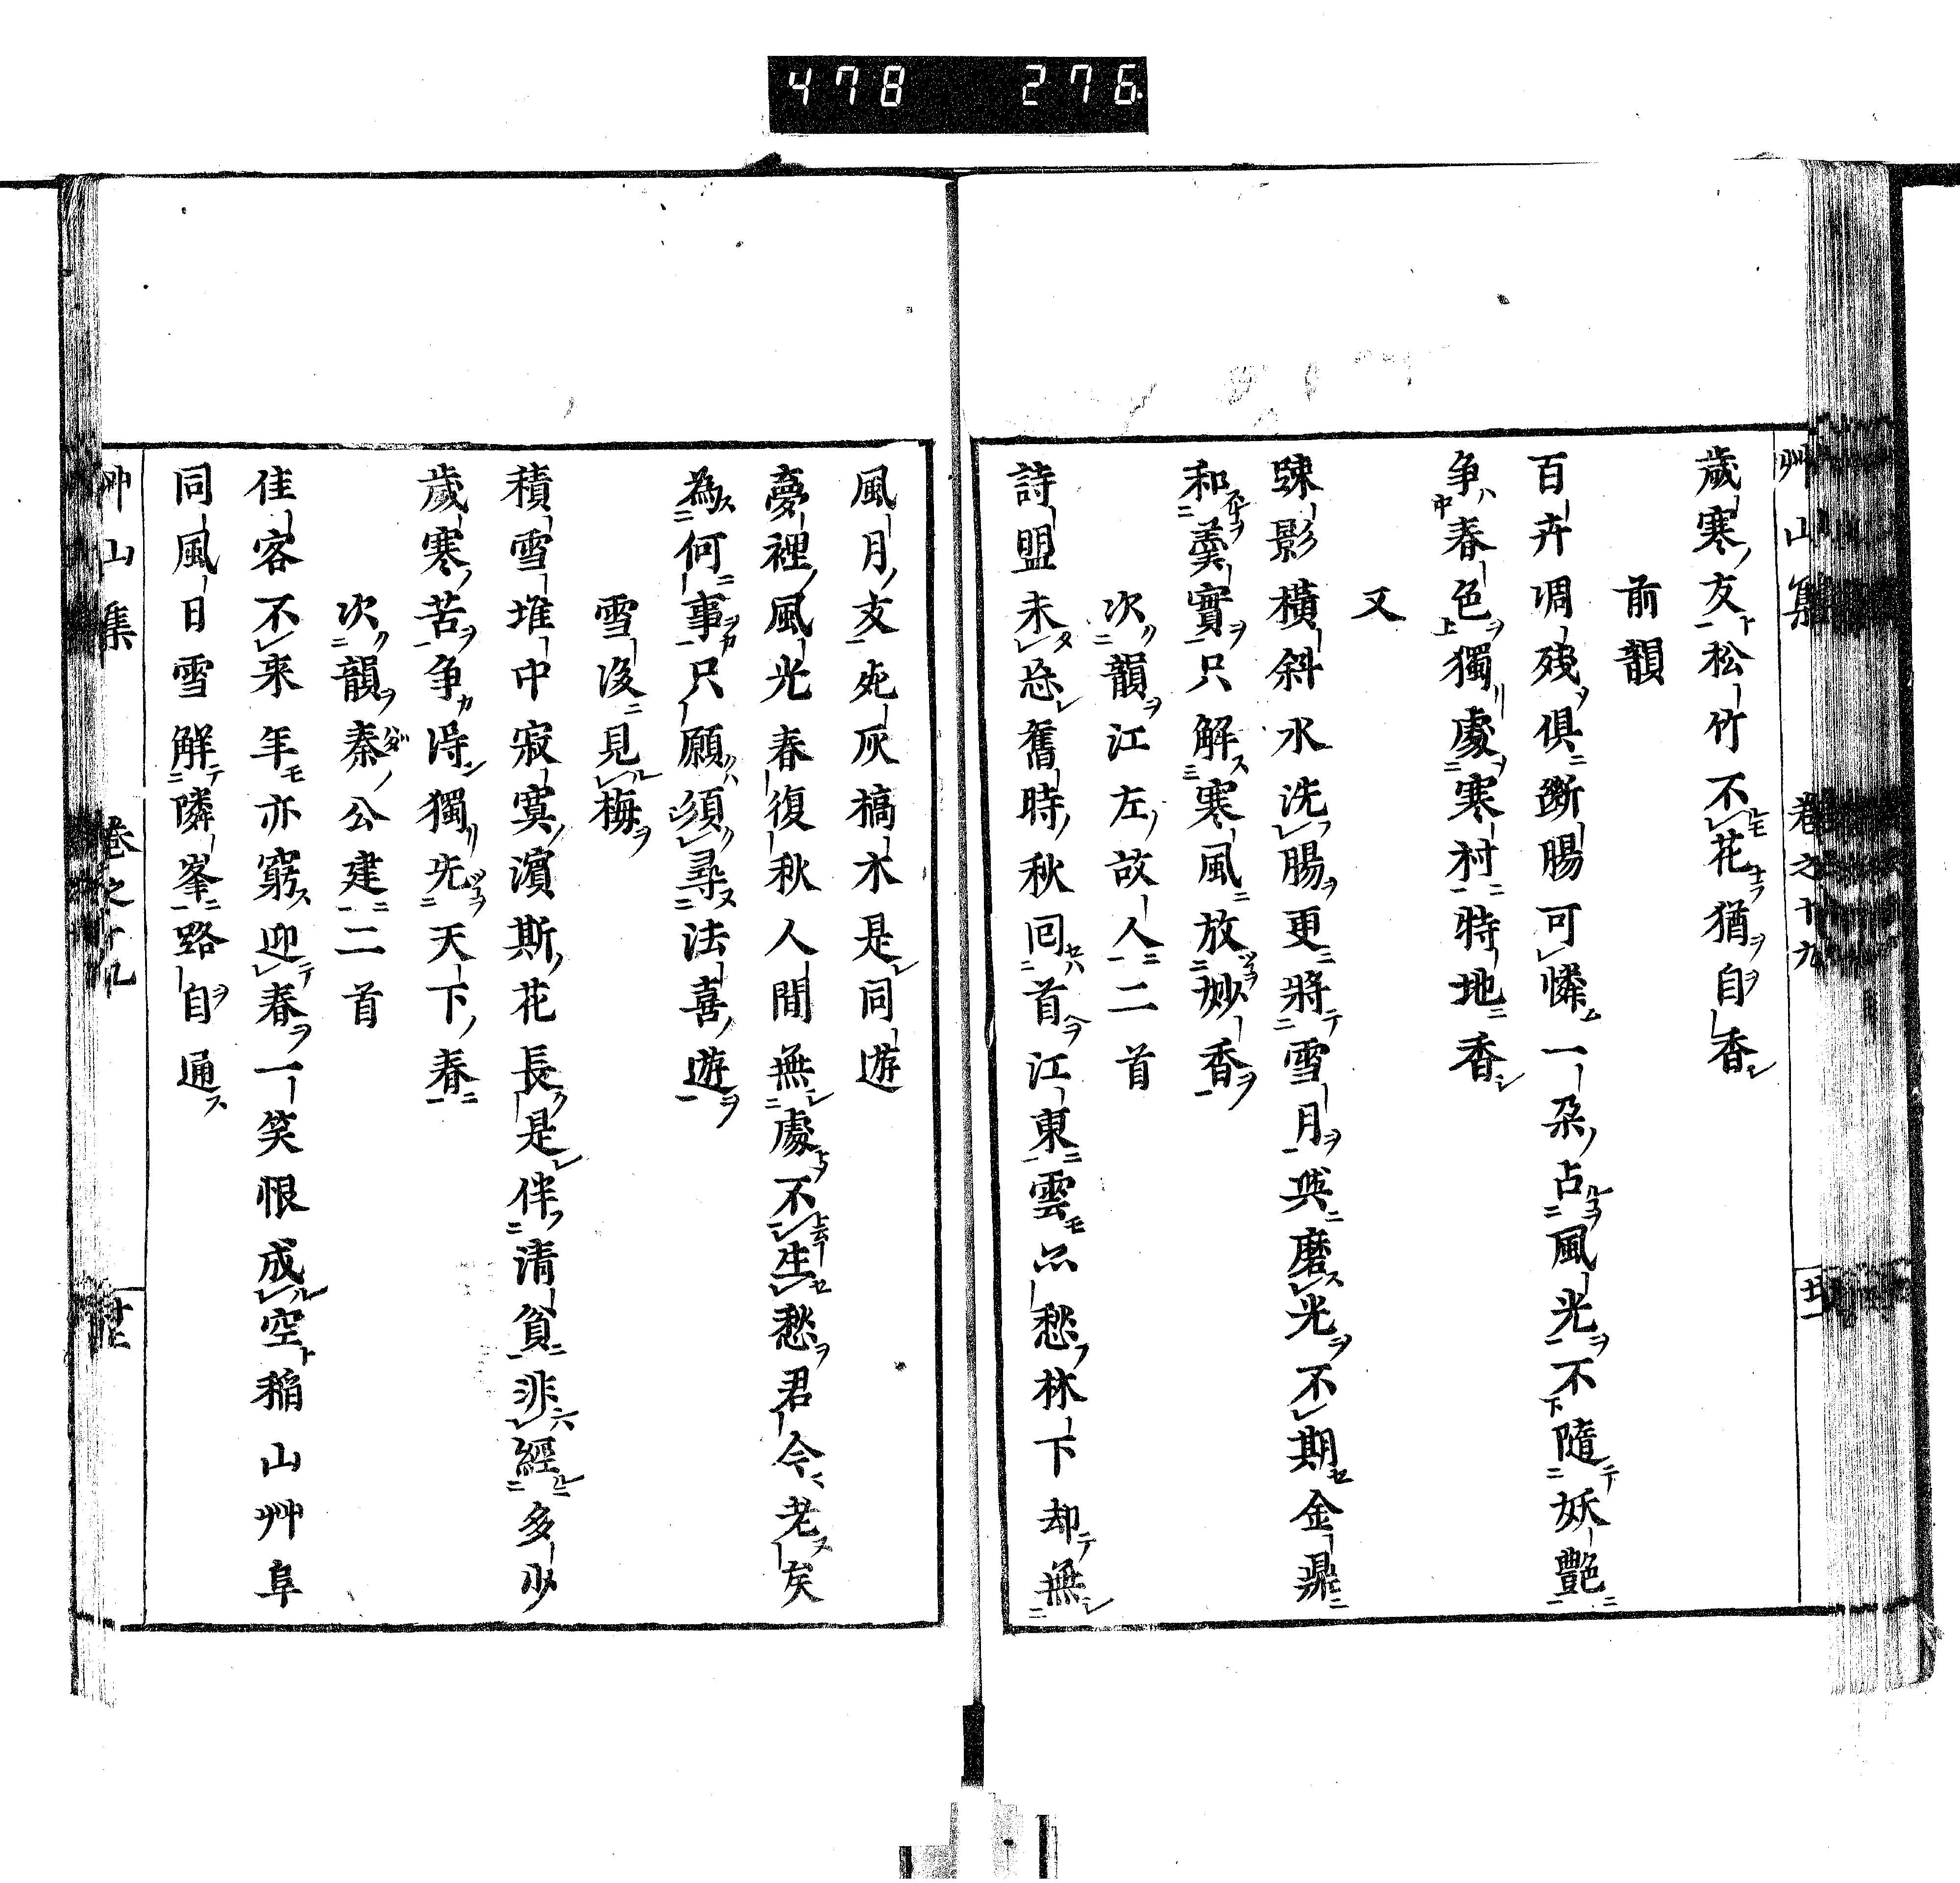 478 276
艸山集 巻之十九
歳寒友松竹不花猶自香
前韻
百卉凋殘俱斷腸可憐一朶占風光不隨妖艷
争春色獨處寒村特地香
又
踈影橫斜水洗腸更將雪月與磨光不期金鼎
和羹實只解寒風放妙香
次韻江左故人二首
詩盟未忘舊時秋回首江東雲亦愁林下却無
風月友死灰槁木是同遊
夢裡風光春復秋人間無處不生愁君今老矣
為何事只願須尋法喜遊
雪後見梅
積雪堆中寂寞濱斯花長是伴清貧非經多少
歳寒苦争得獨先天下春
次韻秦公建二首
佳客不来年亦窮迎春一笑恨成空稲山艸阜
同風日雪解隣峯路自通
艸山集 巻之十九